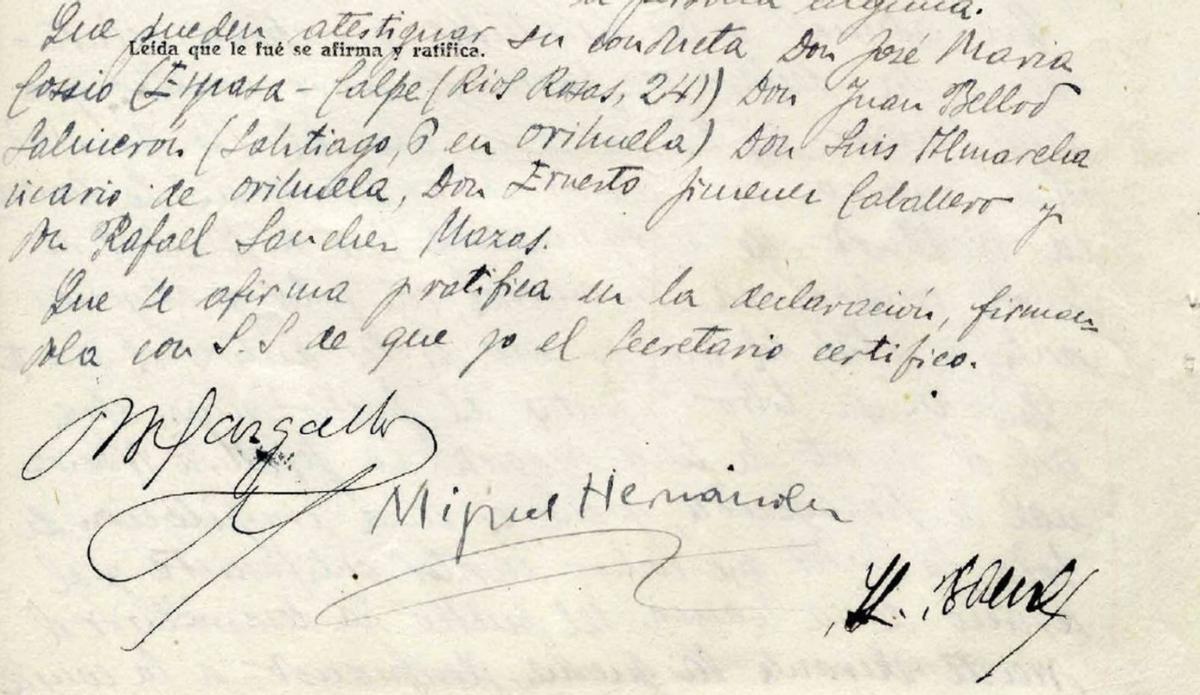 persona alguna.
Que pueden atestiguar su conducta Don José Maria
Leída que le fué se afirma y ratifica.
Cossio (Espasa - Calpe (Rios Rosas, 24)) Don Juan Bellod
Salmerón (Santiago, 6 en orihuela) Don Luis Almarcha
vicario de orihuela, Don Ernesto Jimenez Caballero y
Don Rafael Sanchez Mazas.
Que se afirma y ratifica en la declaración, firman-
dola con S.S de que yo el Secretario certifico.
Margallo
Miguel Hernández